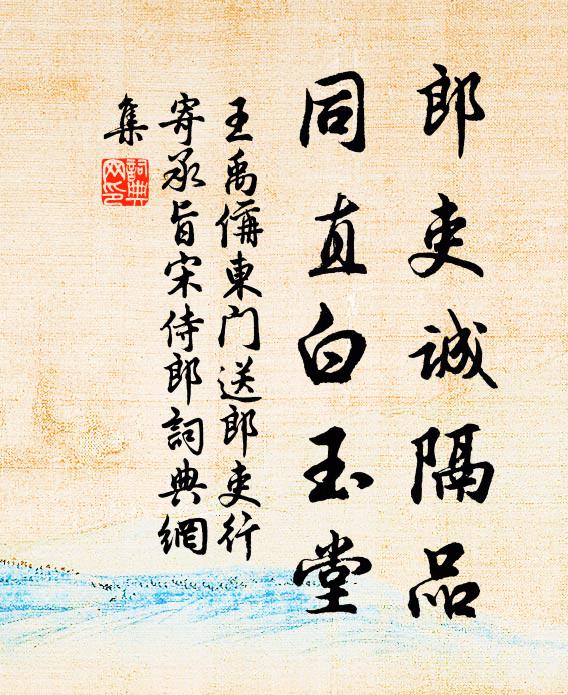 郎吏诚隔品
同直白玉堂
王禹偁東门送郎吏行
寄承旨宋侍郎詞典網
集
詞典
网印